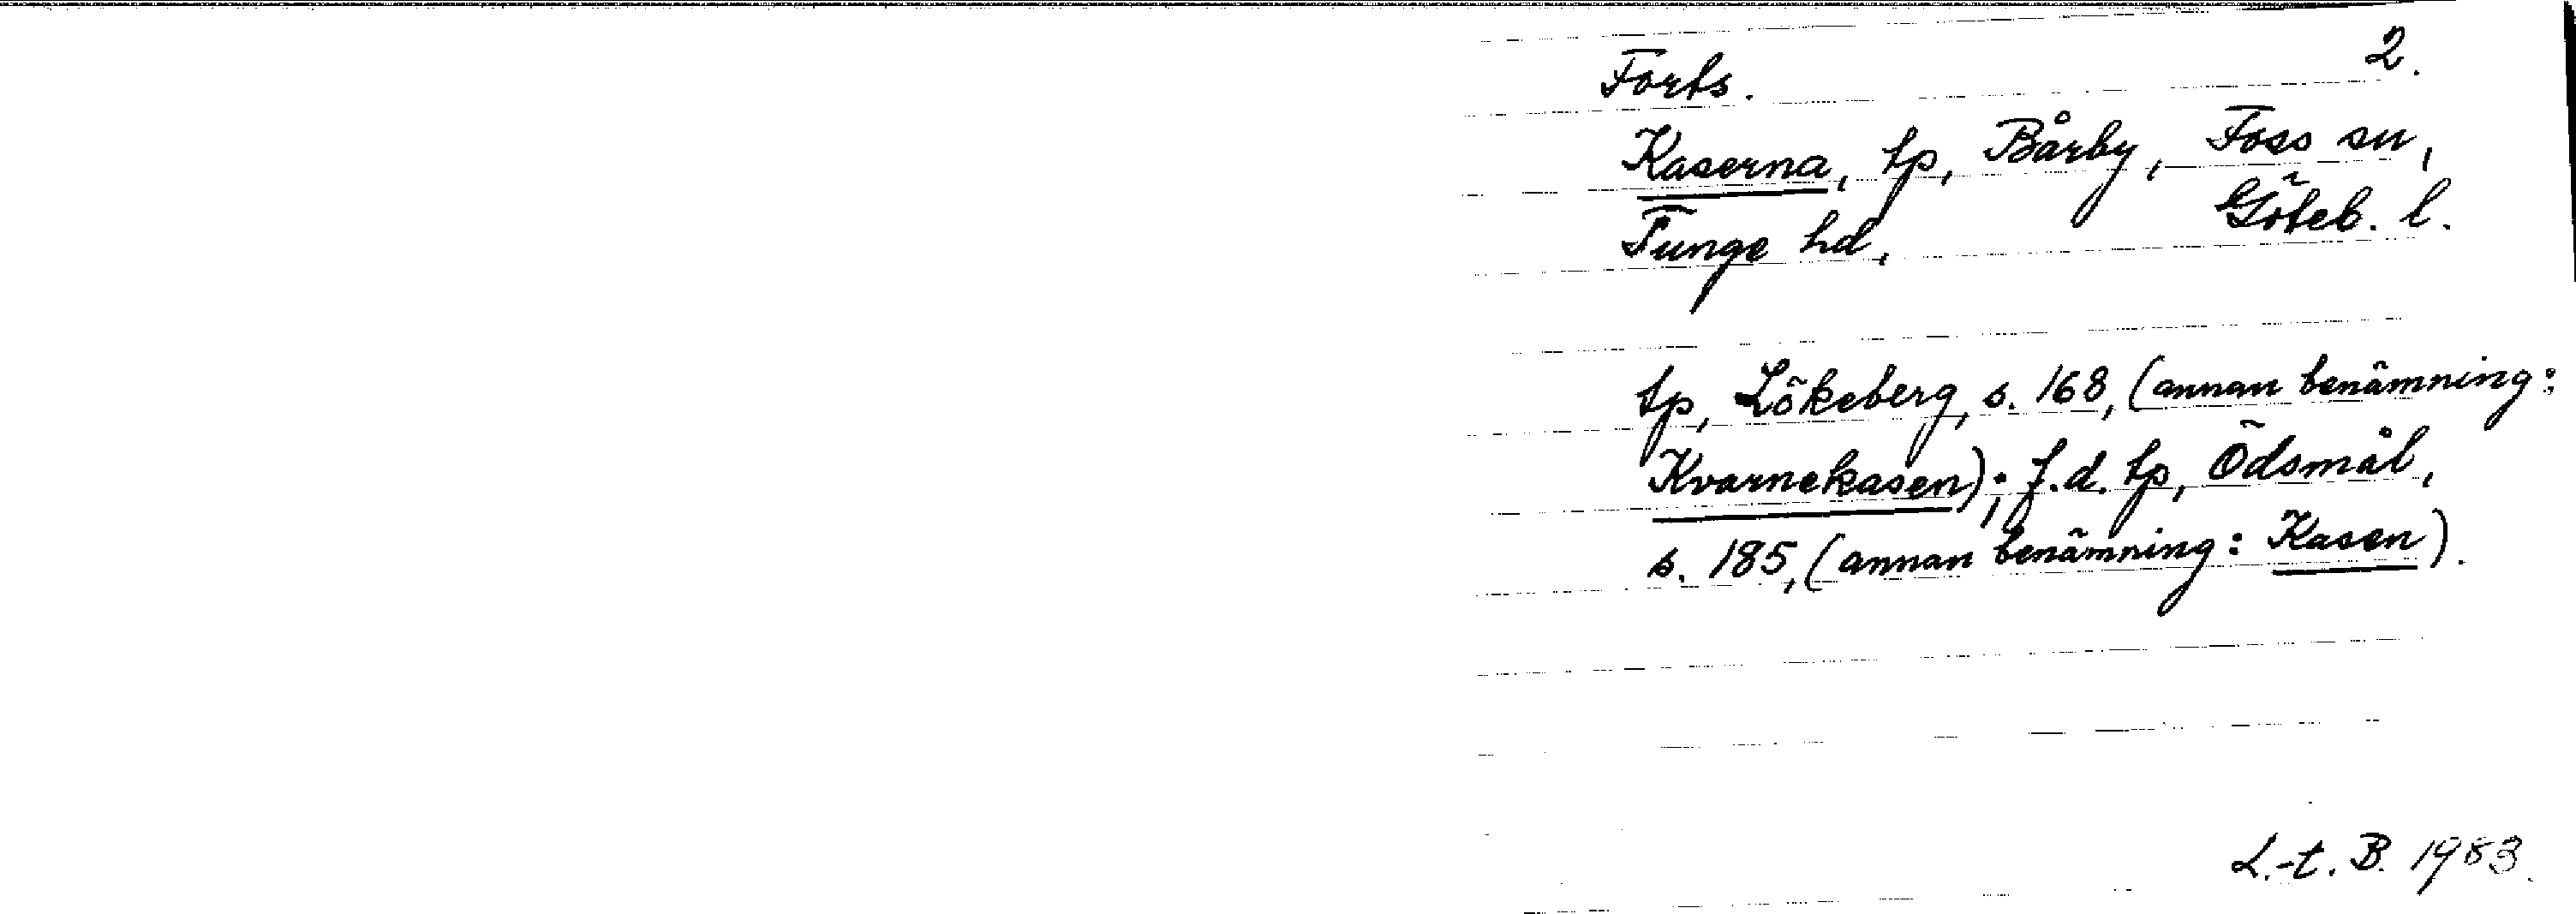 Forts. 2.
Kaserna, tp, Bärby, Foss sn,
Tunge hd, Göteb. l.
tp, Lökeberg, s. 168, (annan benämning:
Kvarnekasen); f.d. tp, Ödsmål,
s. 185, (annan benämning: Kasen).
L.-t. B. 1983.